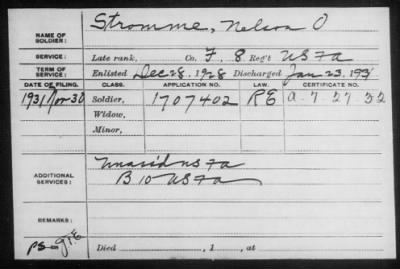 NAME OF SOLDIER: Stromme, Nelson O
SERVICE: Late rank, Co. F, 8 Reg't US FA
TERM OF SERVICE: Enlisted Dec 28, 1928 Discharged Jan 23, 193
DATE OF FILING. CLASS. APPLICATION NO. LAW. CERTIFICATE NO.
1931 Nov 30 Soldier, 1707402 RE A-7-27-32
Widow,
Minor,
ADDITIONAL SERVICES: Unassid US FA
B 10 US FA
REMARKS:
PS- Died , 1 , at